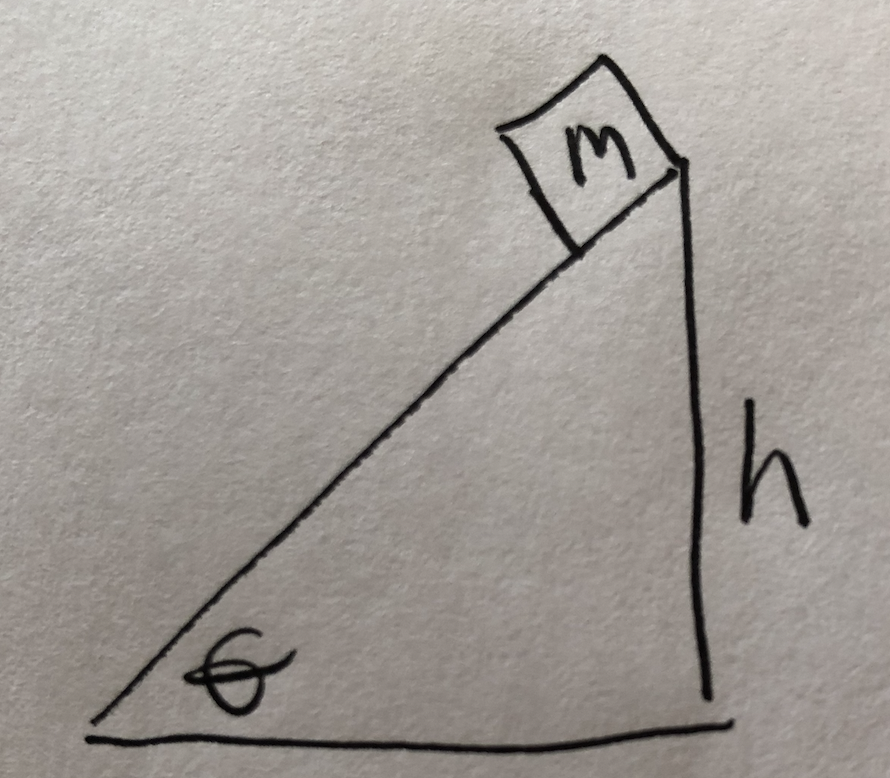 m
h
θ